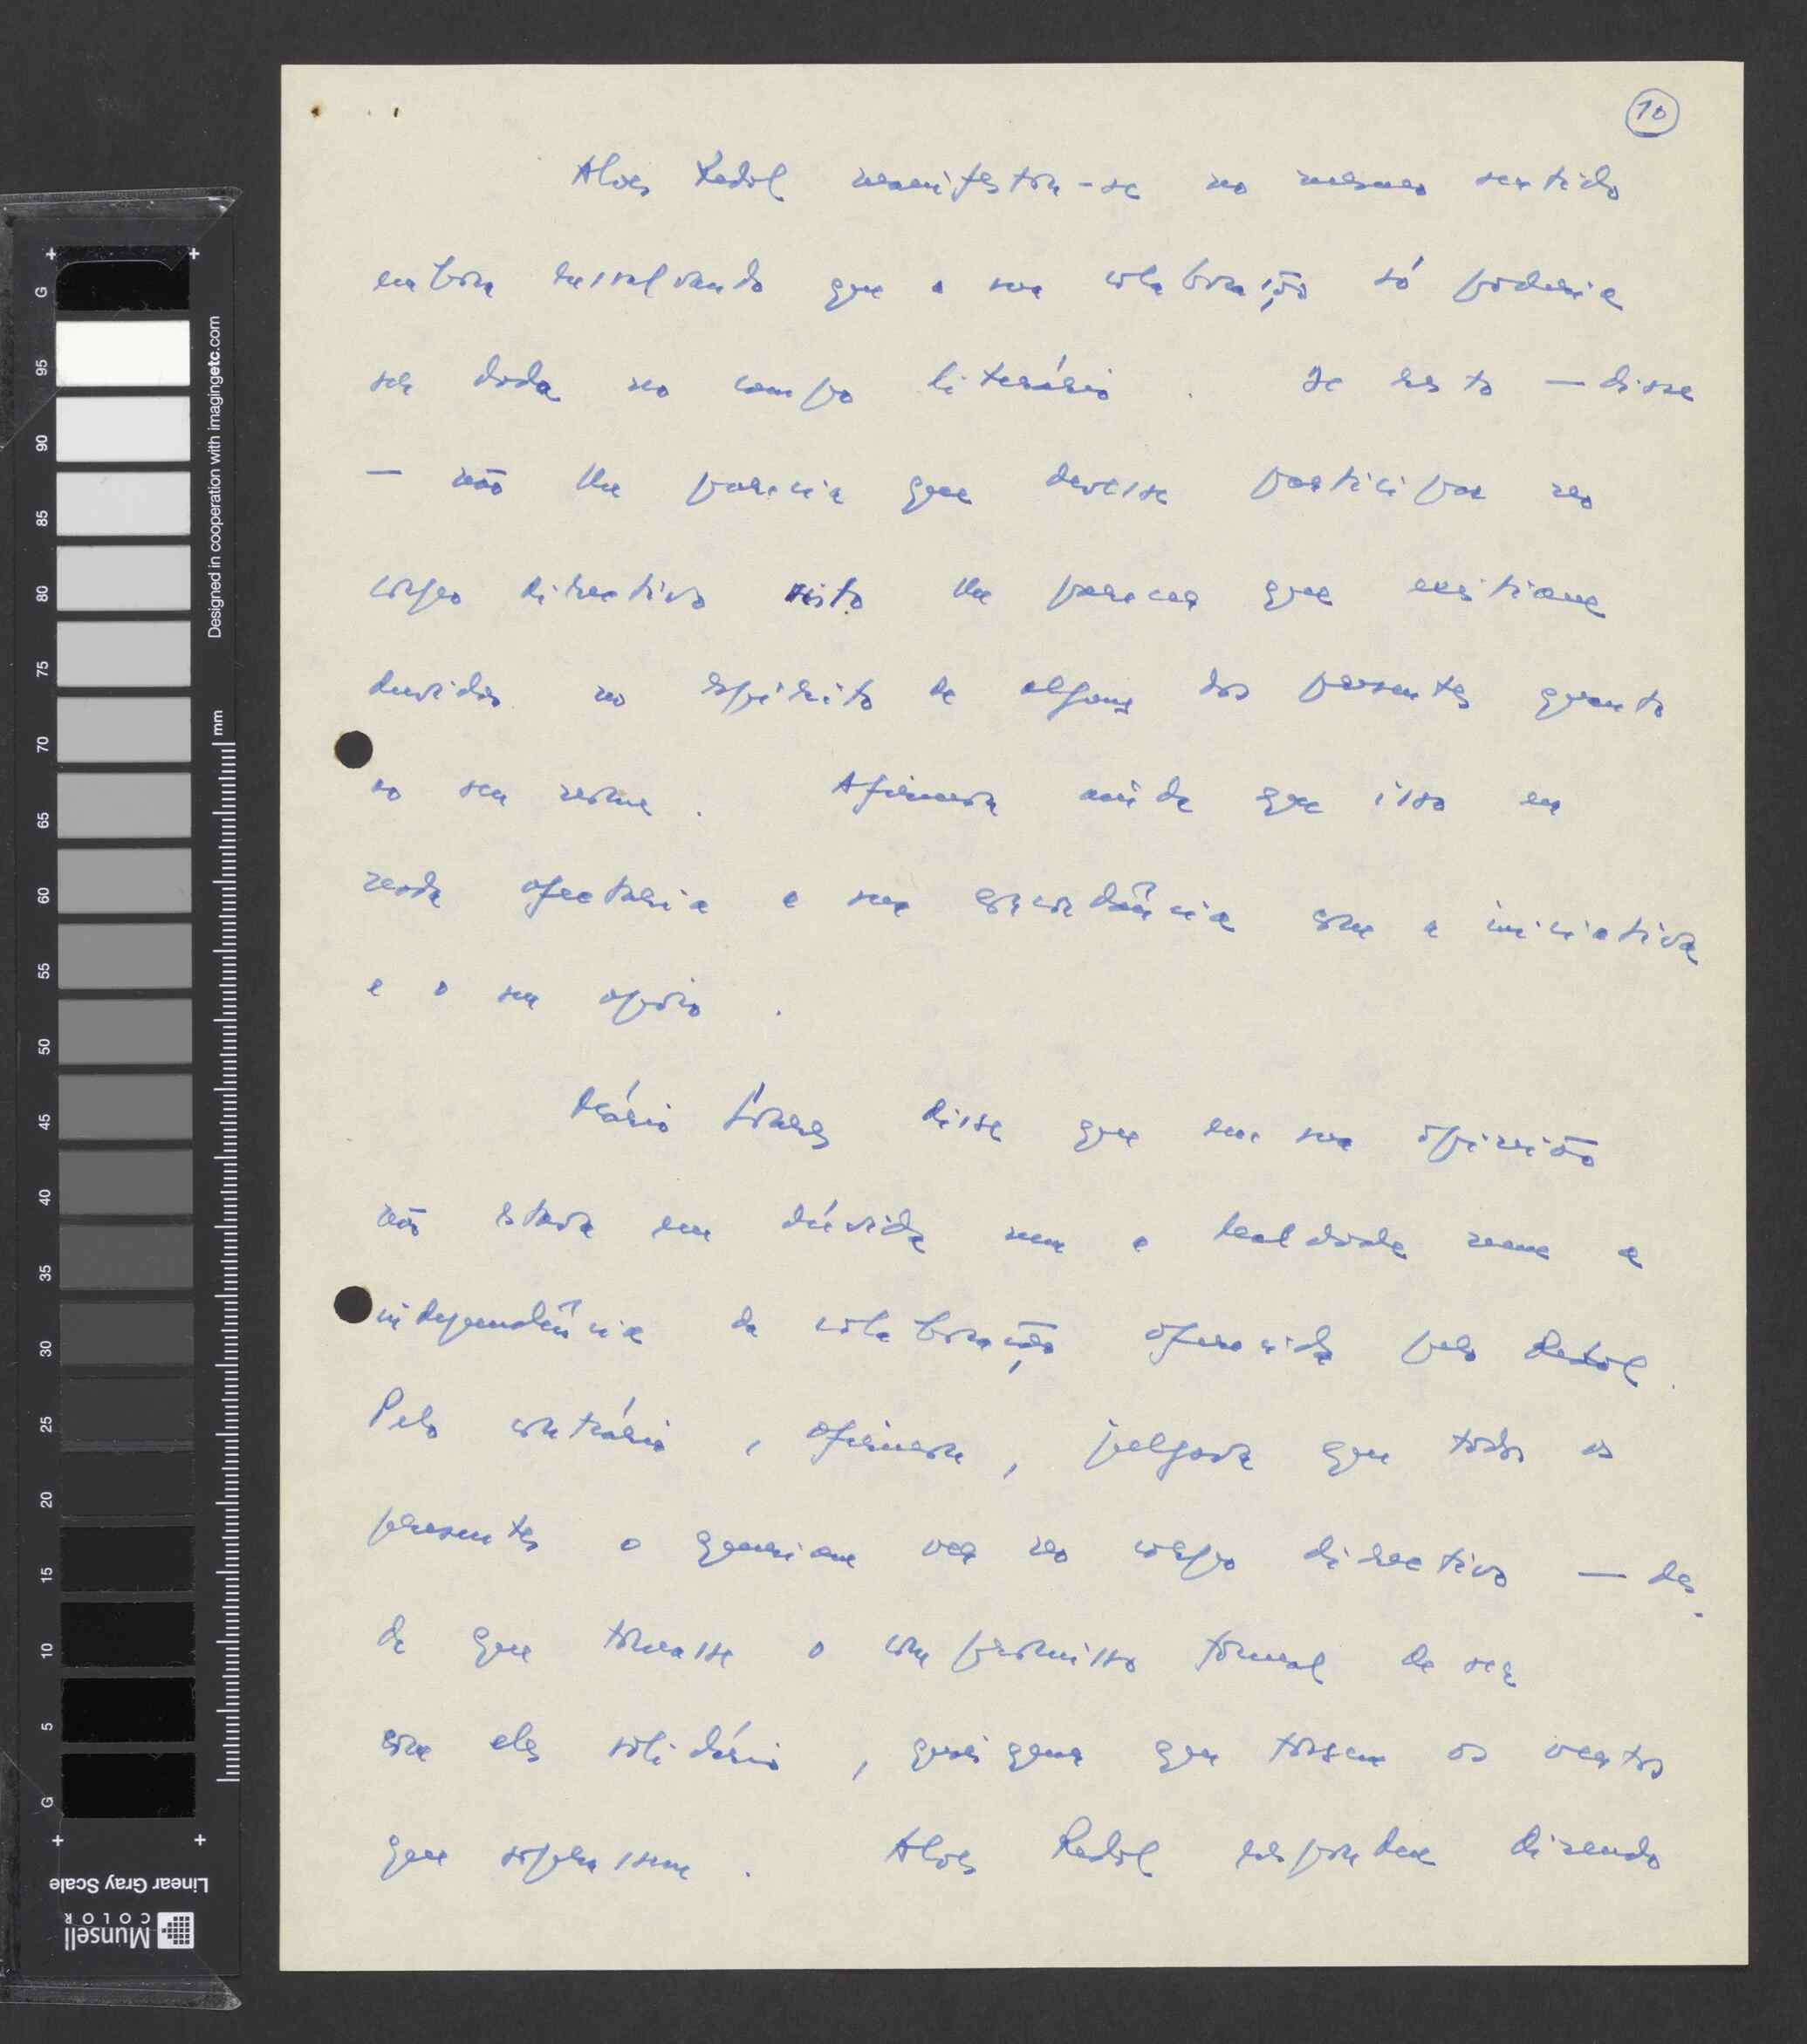 10
Alves Redol manifestou-se no mesmo sentido
embora ressalvando que a sua colaboração só poderia
ser dada no campo literário. De resto — disse
— não lhe parecia que devesse participar no
corpo directivo visto lhe parecer que existiam
duvidas no espírito de alguns dos presentes quanto
ao seu nome. Afirmou ainda que isso em
nada afectaria a sua concordância com a iniciativa
e o seu apoio.
Mário Soares disse que em sua opinião
não estava em dúvida nem a lealdade nem a
independência da colaboração oferecida pelo Redol.
Pelo contrário, afirmou, julgava que todos os
presentes o queriam ver no corpo directivo — des-
de que tomasse o compromisso formal de ser
com eles solidário, quaisquer que fossem os ventos
que soprassem. Alves Redol respondeu dizendo
Designed in cooperation with imagingetc.com
mm
G 95 90 85 80 75 70 65 60 55 50 45 40 35 30 25 20 15 10 5 G
Linear Gray Scale
Munsell
COLOR